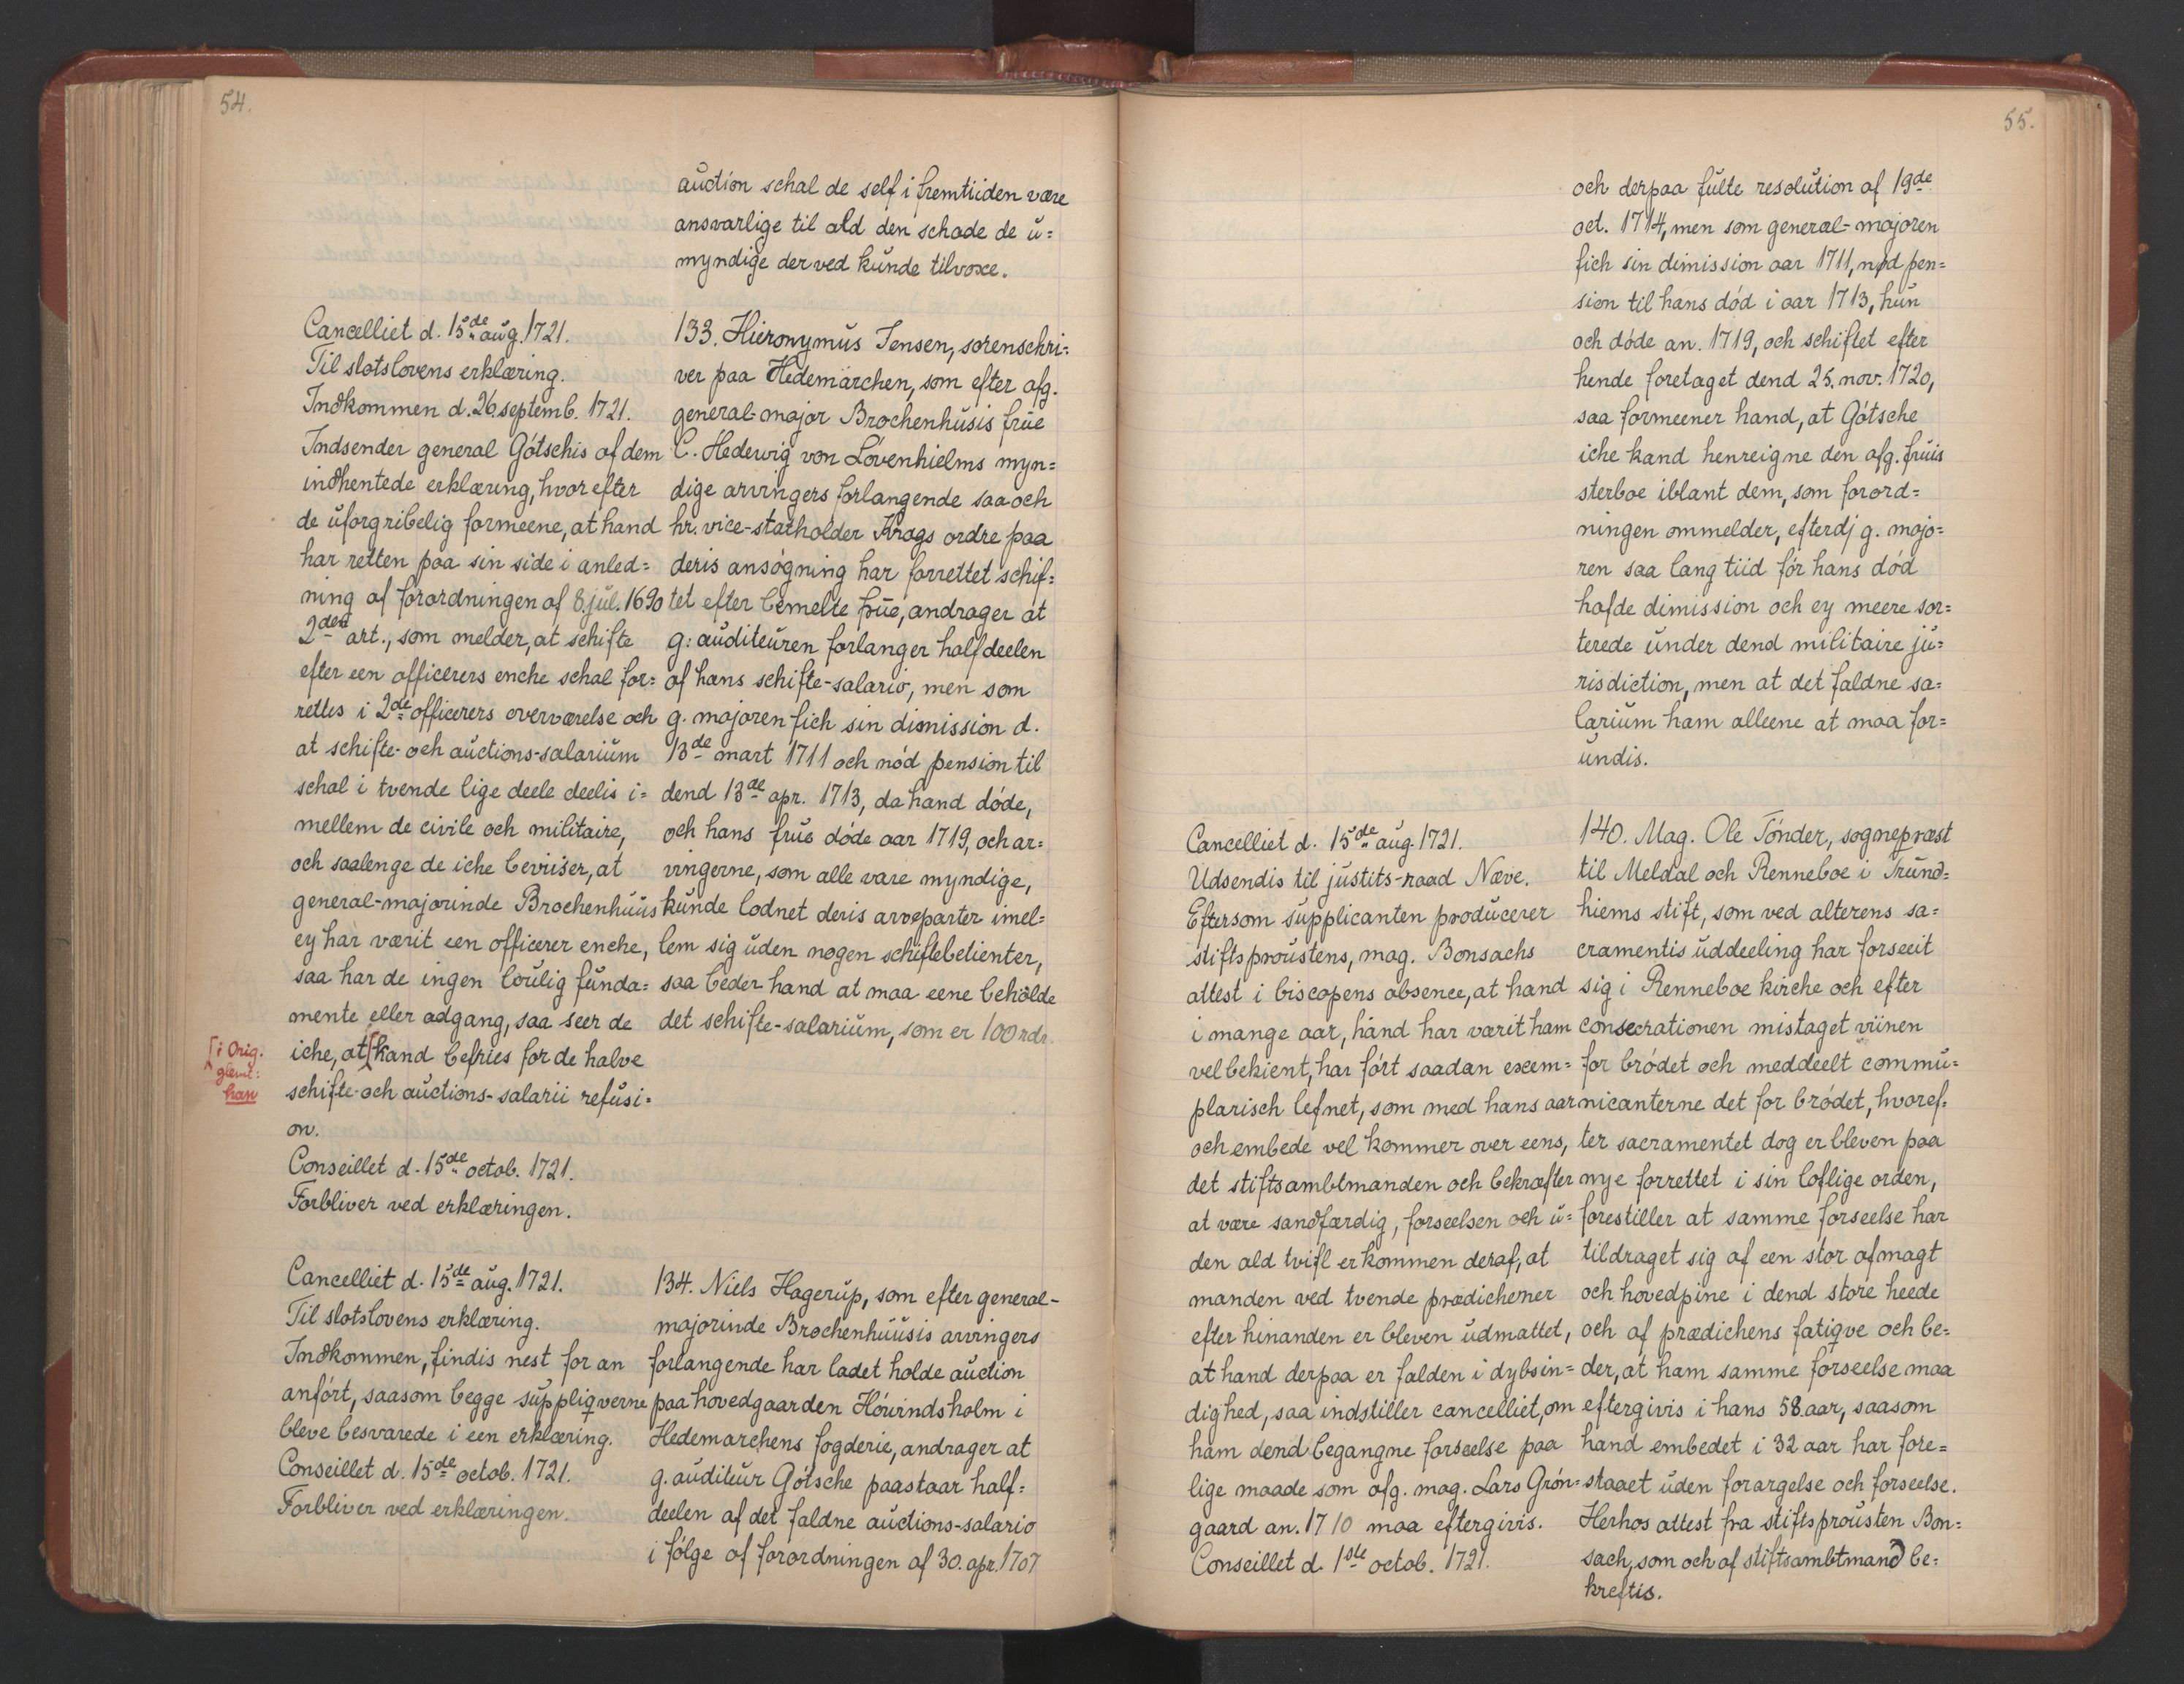 54.
auction schal de self i fremtiiden være
ansvarlige til ald den schade de u=
myndige der ved kunde tilvoxe.
Cancelliet d. 15de aug. 1721.
Til slotslovens erklæring.
Indkommen d. 26. septemb. 1721.
Indsender general Gótschis af dem
indhentede erklæring, hvor efter
de uforgribelig formeene, at hand
har retten paa sin side i anled=
ning af forordningen af 8. jul. 1690
2den art., som melder, at schifte
efter een officerers enche schal for=
rettes i 2de officerers overværelse och
at schifte- och auctions-salarium
schal i tvende lige deele deelis i=
mellem de civile och militaire,
och saalenge de iche beviiser, at
general-majorinde Brochenhuus
ey har værit een officerer enche,
saa har de ingen loulig funda=
mente eller adgang, saa seer de
iche, at [kand befries for de halve
schifte- och auctions-salarii refusi=
on.
[i Orig.
glemt:
han
Conseillet d. 15de octob. 1721.
Forbliver ved erklæringen.
133. Hieronymus Jensen, sorenschri=
ver paa Hedemarchen, som efter afg.
general-major Brochenhusis frue
C. Hedewig von Lövenhielms myn=
dige arvingers forlangende saa och
hr. vice-statholder Krags ordre paa
deris ansógning har forrettet schif=
tet efter bemelte frue, andrager at
g: auditeuren forlanger halfdeelen
af hans schifte-salario, men som
g. majoren fich sin dimission d.
13de mart 1711 och nód pension til
dend 13de apr. 1713, da hand dóde,
och hans frue dóde aar 1719, och ar=
vingerne, som alle vare myndige,
kunde lodnet deris arveparter imel=
lem sig uden nogen schiftebetienter,
saa beder hand at maa eene beholde
det schifte-salarium, som er 100 rdr.
Cancelliet d. 15de aug. 1721.
Til slotslovens erklæring.
Indkommen, findis nest for an
anfórt, saasom begge suppliqverne
bleve besvarede i een erklæring.
Conseillet d. 15de octob. 1721.
Forbliver ved erklæringen.
134. Niels Hagerup, som efter general-
majorinde Brochenhuusis arvingers
forlangende har ladet holde auction
paa hovedgaarden Hóvindsholm i
Hedemarchens fogderie, andrager at
g. auditeur Gótsche paastaar half=
deelen af det faldne auctions-salario
i fólge af forordningen af 30. apr. 1707
55.
och derpaa fulte resolution af 19de
oct. 1714, men som general-majoren
fich sin dimission aar 1711, nød pen=
sion til hans dód i aar 1713, hun
och dóde an. 1719, och schiftet efter
hende foretaget dend 25. nov. 1720,
saa formeener hand, at Gótsche
iche kand henreigne den afg. fruis
sterboe iblant dem, som forord=
ningen ommelder, efterdj g. majo=
ren saa lang tiid fór hans dód
hafde dimission och ey meere sor=
terede under dend militaire ju=
risdiction, men at det faldne sa=
larium ham alleene at maa for=
undis.
Cancelliet d. 15de aug. 1721.
Udsendis til justits-raad Næve.
Eftersom supplicanten producerer
stiftsproustens, mag. Bonsachs
attest i biscopens absence, at hand
i mange aar, hand har værit ham
vel bekient, har fórt saadan exem=
plarisch lefnet, som med hans aar
och embede vel kommer over eens,
det stiftsambtmanden och bekræfter
at være sandfærdig, forseelsen och u=
den ald tvifl er kommen deraf, at
manden ved tvende prædichener
efter hinanden er bleven udmattet,
at hand derpaa er falden i dybsin=
dighed, saa indstiller cancelliet, om
ham dend begangne forseelse paa
lige maade som afg. mag. Lars Grón=
gaard an. 1710 maa eftergivis.
Conseillet d. 1ste octob. 1721.
140. Mag. Ole Tónder, sognepræst
til Meldal och Renneboe i Trund=
hiems stift, som ved alterens sa=
cramentis uddeeling har forseeit
sig i Renneboe kirche och efter
consecrationen mistaget viinen
for bródet och meddeelt commu=
nicanterne det for bródet, hvoref=
ter sacramentet dog er bleven paa
nye forrettet i sin loflige orden,
forestiller at samme forseelse har
tildraget sig af een stor afmagt
och hovedpine i dend store heede
och af prædichens fatiqve och be=
der, at ham samme forseelse maa
eftergivis i hans 58. aar, saasom
hand embedet i 32 aar har fore=
staaet uden forargelse och forseelse.
Herhos attest fra stiftsprousten Bon=
sach, som och af stiftsambtmand be=
kreftis.